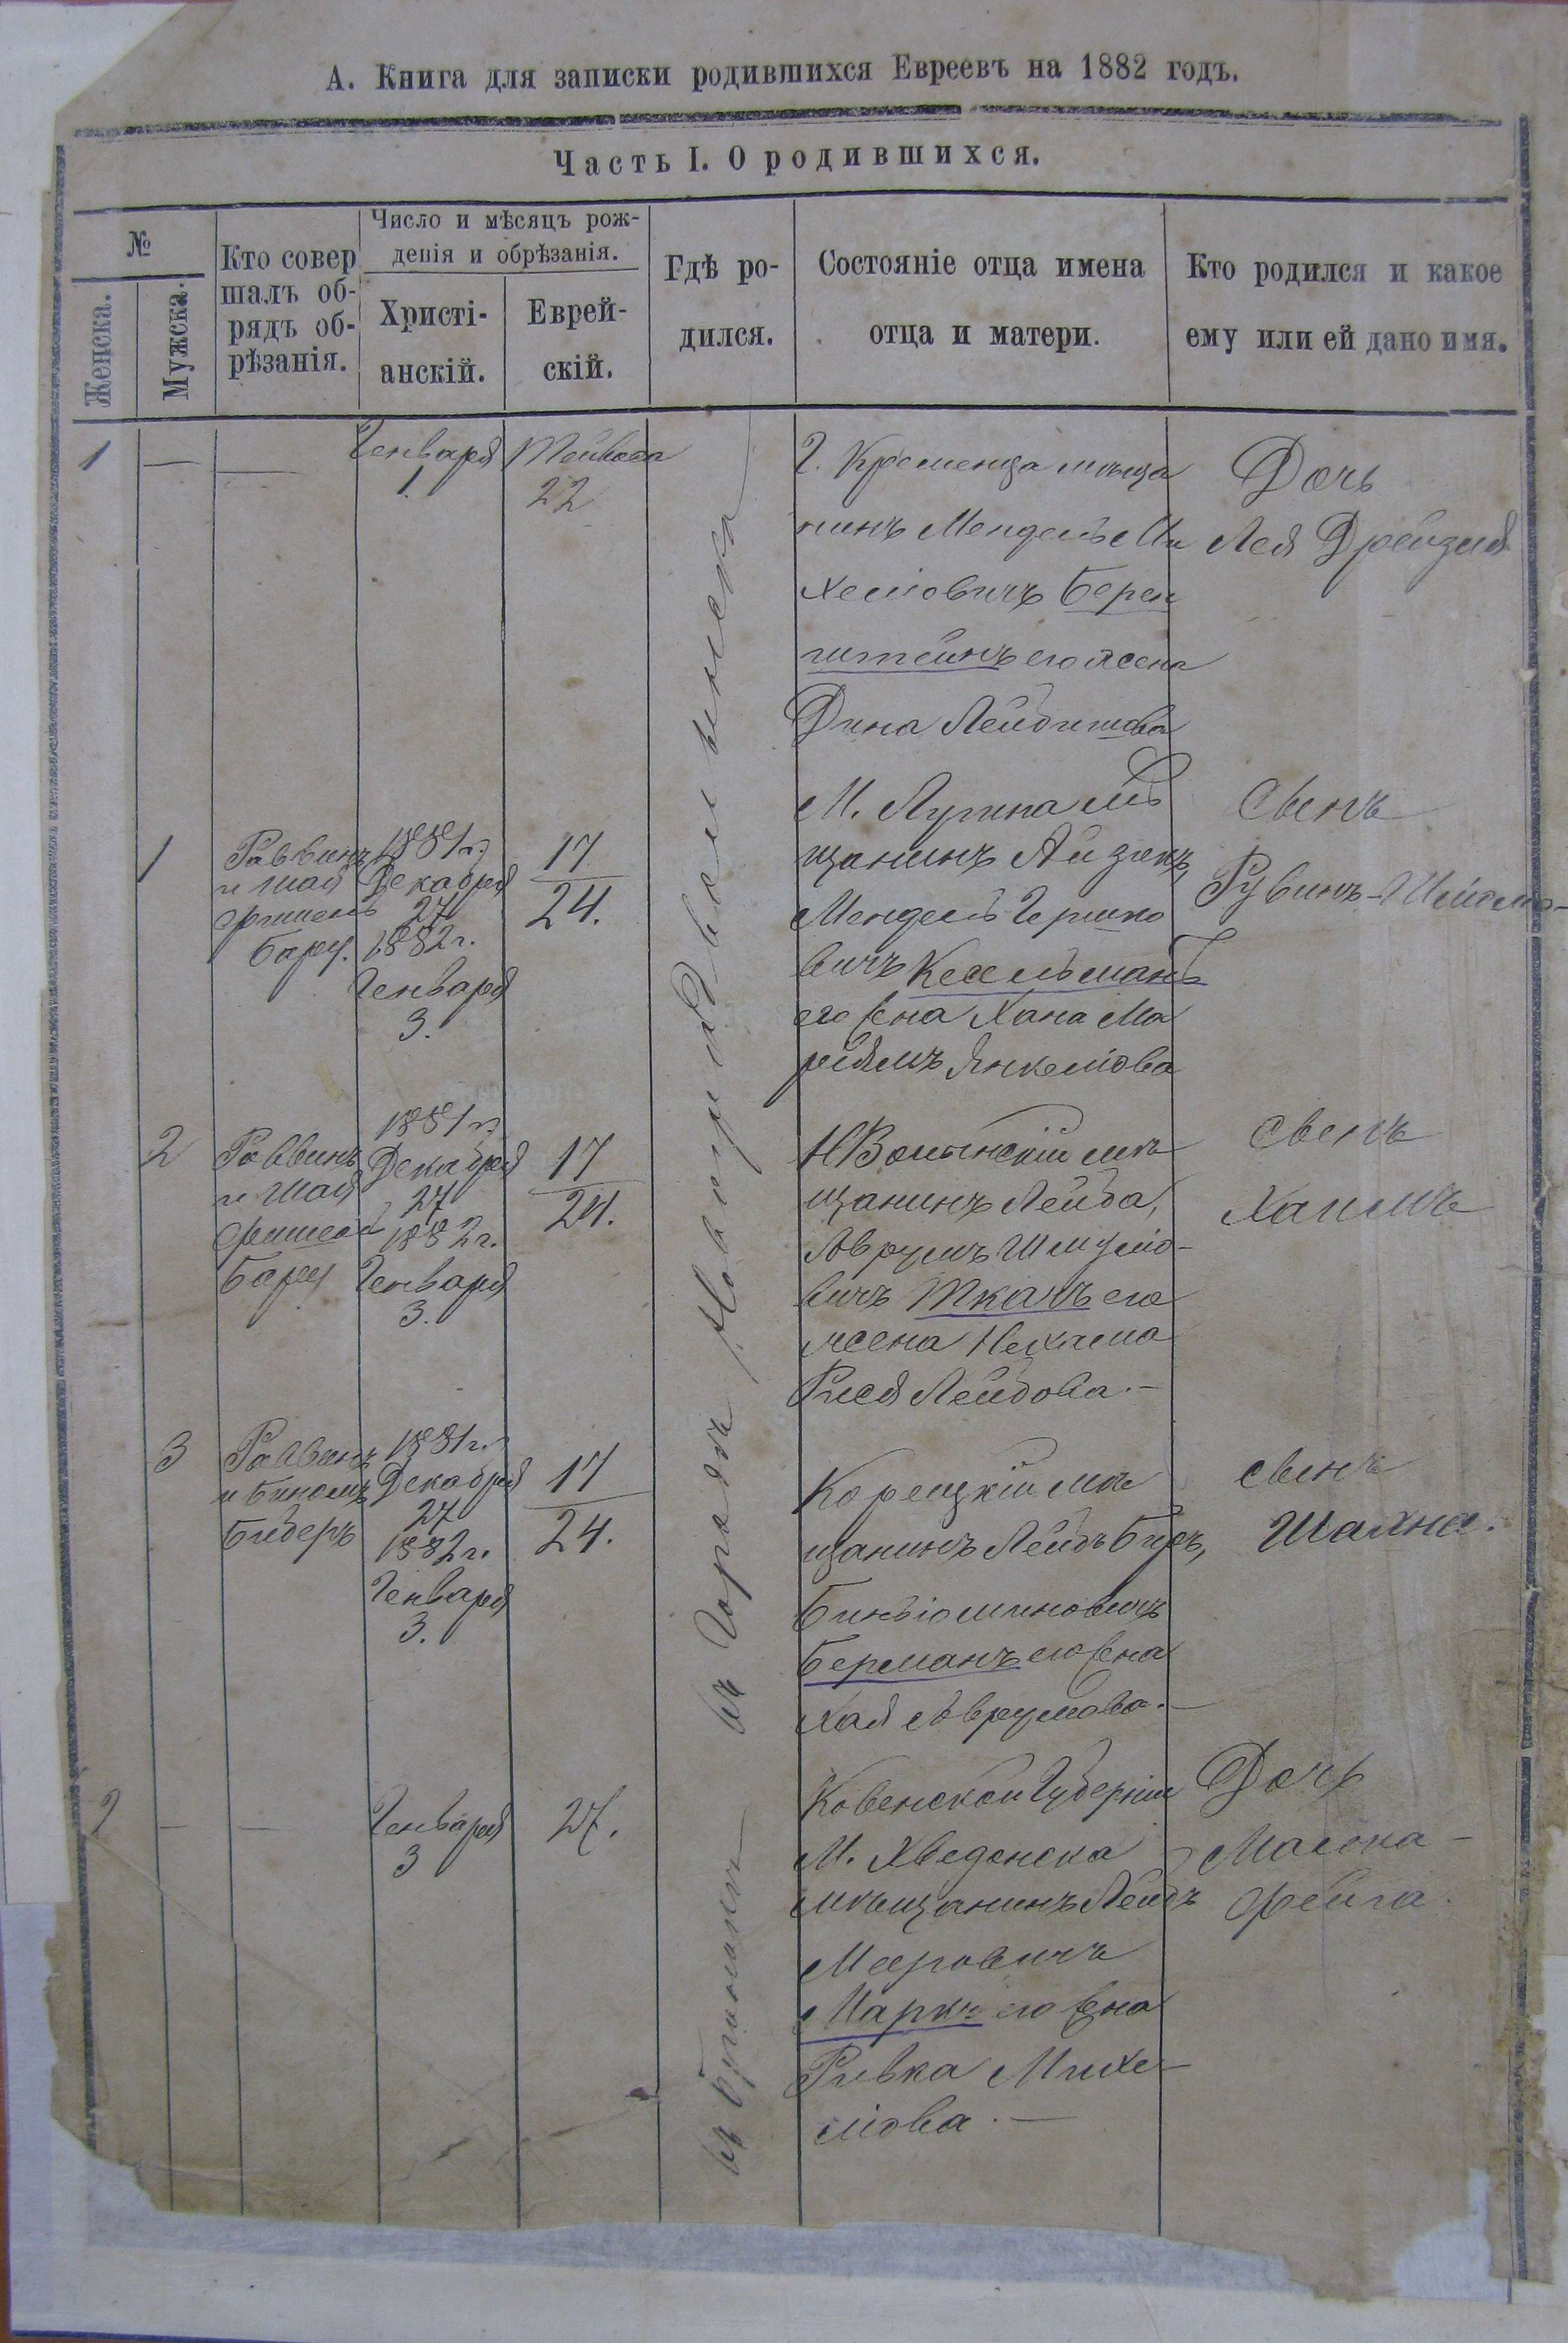 А. Книга для записки родившихся Евреевъ на 1882 годъ.
Часть I. О родившихся.
№
Женска.
Мужска.
Кто совер
шалъ об-
рядъ об-
рѣзанія.
Число и мѣсяцъ рож-
денія и обрѣзанія.
Христі-
анскій.
Еврей-
скій.
Гдѣ ро-
дился.
Состояніе отца имена
отца и матери.
Кто родился и какое
ему или ей дано имя.
въ Городѣ Новоградволынскѣ
1
—
—
Генваря
1.
Тейвеса
22
Г. Кременца мѣща
нинъ Мендель Ми
хелiовичъ Берен
штейнъ его жена
Дина Лейбишова
Дочь
Лея Дрейзля
1
Раввинъ
и Шая
Фишель
Барц.
1881 г.
Декабря
27
1882 г.
Генваря
3.
17
24.
М. Лугина мѣ
щанинъ Айзикъ
Мендель Гершко
вичъ Кесельманъ
его жена Хана Ма
рiямъ Янкелiова
Сынъ
Рувинъ-
2
Раввинъ
и Шая
Фишель
Барц
1881 г.
Декабря
27
1882 г.
Генваря
3.
17
24.
НВолынскiй мѣ
щанинъ Лейба,
Аврумъ Шмулiо-
вичъ Ткачъ его
жена Нехама
Рися Лейбова.—
Сынъ
Хаимъ
3
Раввинъ
и Биномъ
Биберъ
1881 г.
Декабря
27
1882 г.
Генваря
3.
17
24.
Корецкiй мѣ
щанинъ Лейбъ Беръ,
Биньiоминовичъ
Берманъ его жена
Хая Аврумова.—
сынъ
Шахна.
2
—
—
Генваря
3
24.
Ковенской Губернiи
М. Хведонска
мѣщанинъ Лейбъ
Мееровичъ
Марки его жена
Ривка Михе-
лiова.—
Дочь
Малка-
Фейга.